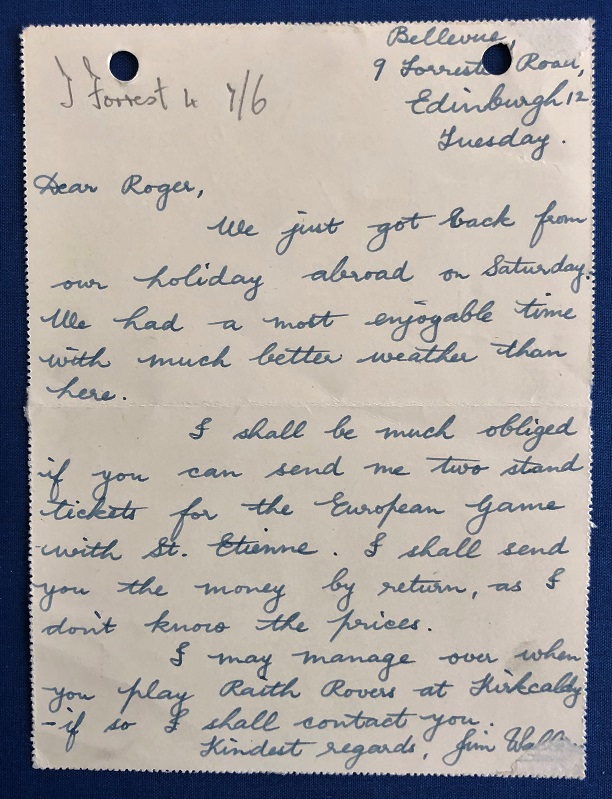 Bellevue,
9 Forrester Road,
Edinburgh 12
Tuesday.
J Forrest 4 7/6
Dear Roger,
We just got back from
our holiday abroad on Saturday.
We had a most enjoyable time
with much better weather than
here.
I shall be much obliged
if you can send me two stand
tickets for the European Game
with St. Etienne. I shall send
you the money by return, as I
don't know the prices.
I may manage over when
you play Raith Rovers at Kirkcaldy
- if so I shall contact you.
Kindest regards, Jim